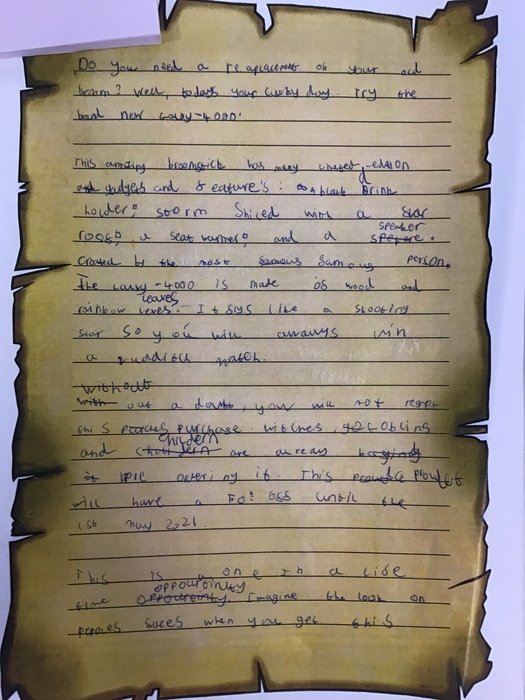 Do you need a reaplacement os your old
broom? Well, todays your lucky day. Try the
band new
This amazing broomstick has many edtion
gadgets and seature's: a black Drink
holder, storm Shiced with a star
roos, a seat warmer, and a speaker.
Crated by the most samous person.
The -4000 is made os wood and
rainbow leaves. It slys like a shooting
star So you will always win
a quddich match.
without
out a doubt, you will not regret
this purchase. witches,
and childern are alreay
it. This
will have a 50% oss until the
1st may 2021.
This is a one in a lise
time oppourtinity. Imagine the look on
peoples saces when you get this